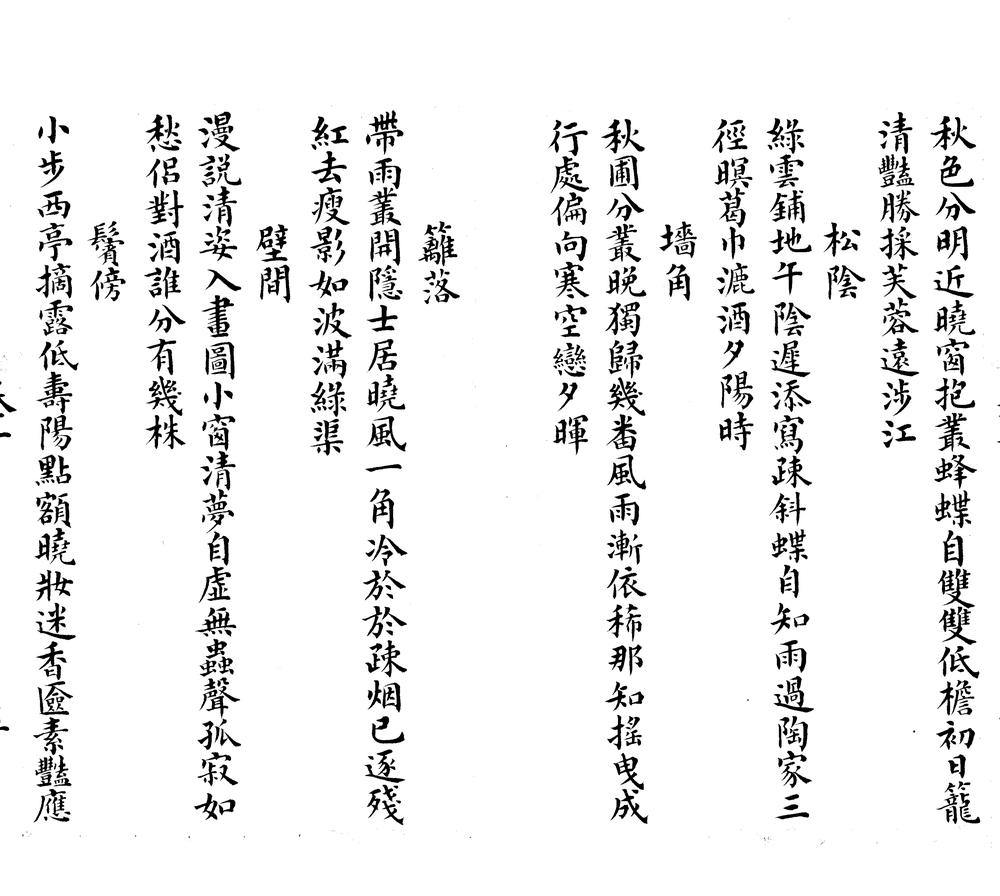 秋色分明近曉窗抱叢蜂蝶自雙雙低檐初日籠
清豔勝採芙蓉遠涉江
松陰
綠雲鋪地午陰遲添寫疎斜蝶自知雨過陶家三
徑暝葛巾漉酒夕陽時
墻角
秋圃分叢晚獨歸幾畨風雨漸依稀那知搖曳成
行處偏向寒空戀夕暉
籬落
帶雨叢開隱士居曉風一角冷於於疎烟已逐殘
紅去瘦影如波滿綠渠
壁間
漫説清姿入畫圖小窗清夢自虛無蟲聲孤寂如
愁侶對酒誰分有幾株
鬢傍
小步西亭摘露低壽陽點額曉妝迷香匳素豔應